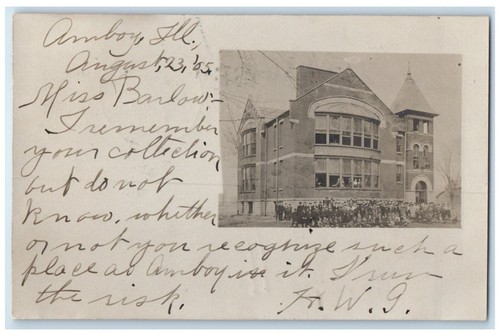 Amboy, Ill.,
August, 23, '05.
Miss Barlow:-
I remember
your collection
but do not
know, whether
or not you recognize such a
place as Amboy in it. I'll run
the risk. H. W. G.